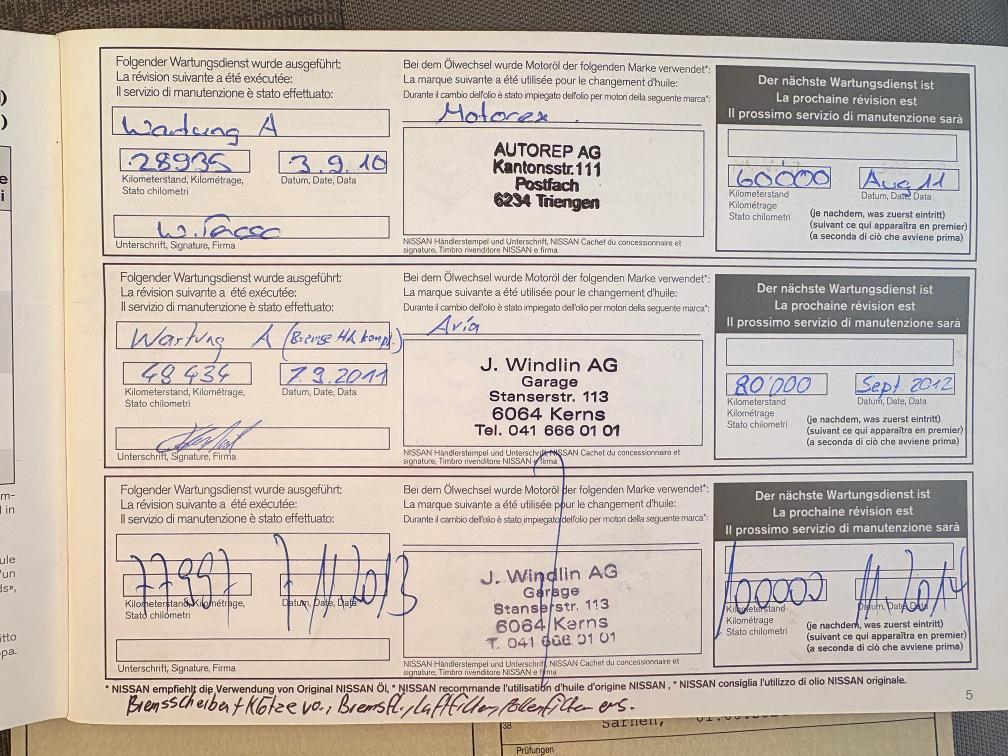 Folgender Wartungsdienst wurde ausgeführt:
La révision suivante a été exécutée:
Il servizio di manutenzione è stato effettuato:
Wartung A
28935 3.9.10
Kilometerstand, Kilométrage,
Stato chilometri
Datum, Date, Data
Unterschrift, Signature, Firma
Bei dem Ölwechsel wurde Motoröl der folgenden Marke verwendet*:
La marque suivante a été utilisée pour le changement d'huile:
Durante il cambio dell'olio è stato impiegato dell'olio per motori della seguente marca*:
Motorex
AUTOREP AG
Kantonsstr. 111
Postfach
6234 Triengen
NISSAN Händlerstempel und Unterschrift, NISSAN Cachet du concessionnaire et
signature, Timbro rivenditore NISSAN e firma
Der nächste Wartungsdienst ist
La prochaine révision est
Il prossimo servizio di manutenzione sarà
60000 Aug 11
Kilometerstand
Kilométrage
Stato chilometri
Datum, Date, Data
(je nachdem, was zuerst eintritt)
(suivant ce qui apparaîtra en premier)
(a seconda di ciò che avviene prima)
Folgender Wartungsdienst wurde ausgeführt:
La révision suivante a été exécutée:
Il servizio di manutenzione è stato effettuato:
Wartung A (Bremse HA kompl.)
49434 7.9.2011
Kilometerstand, Kilométrage,
Stato chilometri
Datum, Date, Data
Unterschrift, Signature, Firma
Bei dem Ölwechsel wurde Motoröl der folgenden Marke verwendet*:
La marque suivante a été utilisée pour le changement d'huile:
Durante il cambio dell'olio è stato impiegato dell'olio per motori della seguente marca*:
Avia
J. Windlin AG
Garage
Stanserstr. 113
6064 Kerns
Tel. 041 666 01 01
NISSAN Händlerstempel und Unterschrift, NISSAN Cachet du concessionnaire et
signature, Timbro rivenditore NISSAN e firma
Der nächste Wartungsdienst ist
La prochaine révision est
Il prossimo servizio di manutenzione sarà
80'000 Sept 2012
Kilometerstand
Kilométrage
Stato chilometri
Datum, Date, Data
(je nachdem, was zuerst eintritt)
(suivant ce qui apparaîtra en premier)
(a seconda di ciò che avviene prima)
Folgender Wartungsdienst wurde ausgeführt:
La révision suivante a été exécutée:
Il servizio di manutenzione è stato effettuato:
77997 7.11.2013
Kilometerstand, Kilométrage,
Stato chilometri
Datum, Date, Data
Unterschrift, Signature, Firma
Bei dem Ölwechsel wurde Motoröl der folgenden Marke verwendet*:
La marque suivante a été utilisée pour le changement d'huile:
Durante il cambio dell'olio è stato impiegato dell'olio per motori della seguente marca*:
J. Windlin AG
Garage
Stanserstr. 113
6064 Kerns
T. 041 666 01 01
NISSAN Händlerstempel und Unterschrift, NISSAN Cachet du concessionnaire et
signature, Timbro rivenditore NISSAN e firma
Der nächste Wartungsdienst ist
La prochaine révision est
Il prossimo servizio di manutenzione sarà
100000 11.2014
Kilometerstand
Kilométrage
Stato chilometri
Datum, Date, Data
(je nachdem, was zuerst eintritt)
(suivant ce qui apparaîtra en premier)
(a seconda di ciò che avviene prima)
* NISSAN empfiehlt die Verwendung von Original NISSAN Öl, * NISSAN recommande l'utilisation d'huile d'origine NISSAN, * NISSAN consiglia l'utilizzo di olio NISSAN originale.
5
Bremsscheiben + Klötze vo., Bremsfl., Luftfilter, Pollenfilter ers.
38
Sarnen,
Prüfungen